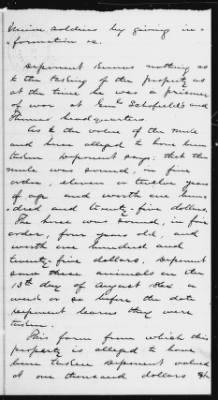 Union soldiers by giving in-
formation &c.
Deponent knows nothing as
to the taking of the property as
at the time he was a prisoner
of war at Genl Schofield's and
Thomas headquarters.
As to the value of the mule
and horse alleged to have been
taken deponent says, that the
mule was sound, in fine
order, eleven or twelve years
of age and worth one hun-
dred and twenty-five dollars.
The horse was sound, in fine
order, four years old, and
worth one hundred and
twenty-five dollars. Deponent
saw these animals on the
13th day of August 1864 a
week or so before the date
deponent learns they were
taken.
This farm from which this
property is alleged to have
been taken deponent valued
at one thousand dollars